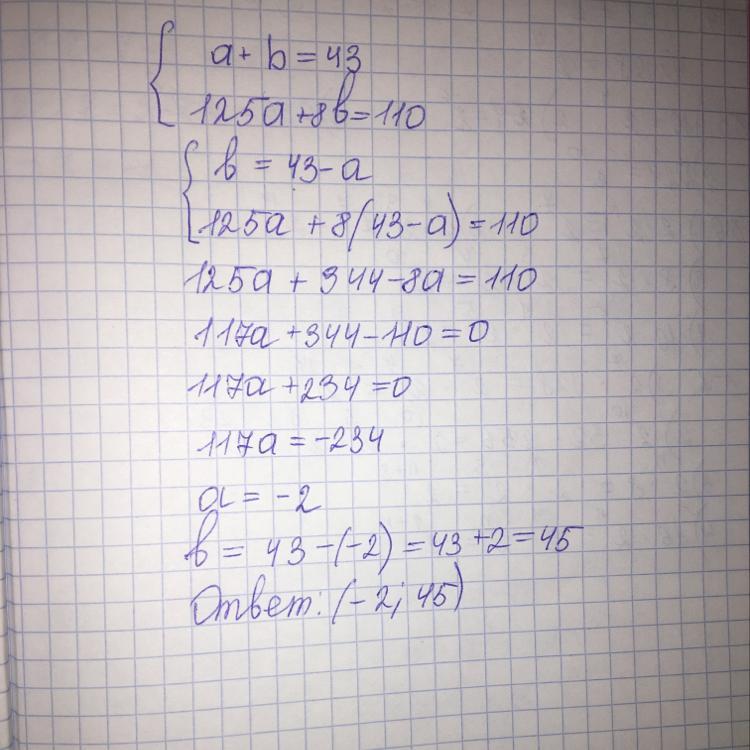 a + b = 43
125a + 8b = 110
b = 43 - a
125a + 8(43 - a) = 110
125a + 344 - 8a = 110
117a + 344 - 110 = 0
117a + 234 = 0
117a = -234
a = -2
b = 43 - (-2) = 43 + 2 = 45
Ответ: (-2; 45)